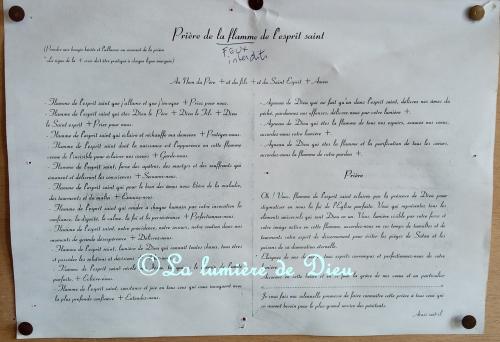 Prière de la flamme de l'esprit saint
feux
interdits
(Prendre une bougie bénite et l'allumer au moment de la prière
Le signe de la + croix doit être pratiqué à chaque ligne marquée)
Au Nom du Père + et du fils + et du Saint Esprit + Amen
- Flamme de l'esprit saint que j'allume et que j'invoque + Priez pour nous.
- Flamme de l'esprit saint qui êtes Dieu le Père + Dieu le Fils + Dieu
le Saint esprit + Priez pour nous.
- Flamme de l'esprit saint qui éclaire et réchauffe nos demeures + Protégez-nous.
- Flamme de l'esprit saint dont la naissance est l'apparence en cette flamme
venue de l'invisible pour éclairer nos âmes + Gardez-nous.
- Flamme de l'esprit saint, force des apôtres, des martyrs et des souffrants qui
animent et délivrent les consciences + Sauvez-nous.
- Flamme de l'esprit saint qui pour le bien des âmes nous libère de la maladie,
des tourments et du malin +
- Flamme de l'esprit saint qui rendez à chaque humain par votre invocation la
confiance, la dignité, le calme, la foi et la persévérance + Perfectionnez-nous.
- Flamme de l'esprit saint, notre providence, notre secours, notre soutien dans nos
moments de grande désespérance + Délivrez-nous.
- Flamme de l'esprit saint, lumière de Dieu qui connaît toutes choses, tous êtres
et possédez les solutions et
Flamme de l'esprit saint
parfaite, + Eclairez-nous.
- Flamme de l'esprit saint, constance et joie en tous ceux qui vous invoquent avec
la plus profonde confiance + Entendez-nous.
- Agneau de Dieu qui ne fait qu'un dans l'esprit saint, délivrez nos âmes du
péché, pardonnez nos offenses, délivrez-nous par votre lumière +.
- Agneau de Dieu qui êtes la flamme de tous nos espoirs, sauvez nos cœurs,
accordez-nous votre lumière +.
- Agneau de Dieu qui êtes la flamme et la purification de tous les cœurs,
accordez-nous la flamme de votre pardon +.
Prière
Oh ! Vous, flamme de l'esprit saint éclairée par la présence de Dieu pour
en nous la foi de l'Eglise parfaite. Vous qui représentez tous les
éléments universels qui sont Dieu en un. Vous, lumière visible par votre force et
votre image active en cette flamme, accordez-nous en ces temps de troubles et de
tourments votre esprit de discernement pour éviter les pièges de Satan et les
poisons de sa domination éternelle.
Eloignez de nos tous esprits corrompus et perfectionnez-nous de votre
la grâce de ma venue et en particulier
Je vous fais ma solennelle promesse de faire connaître cette prière à tous ceux qui
en auront besoin pour le plus grand service des pénitents.
Ainsi soit-il
© La lumière de Dieu